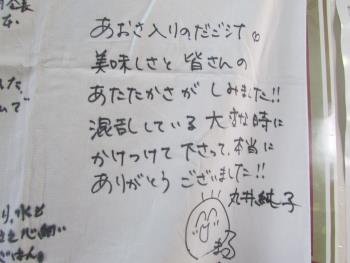 あおさ入りのだご汁。
美味しさと皆さんの
あたたかさがしみました!!
混乱している大変な時に
かけつけて下さって、本当に
ありがとうございました!!
丸井純子
まる